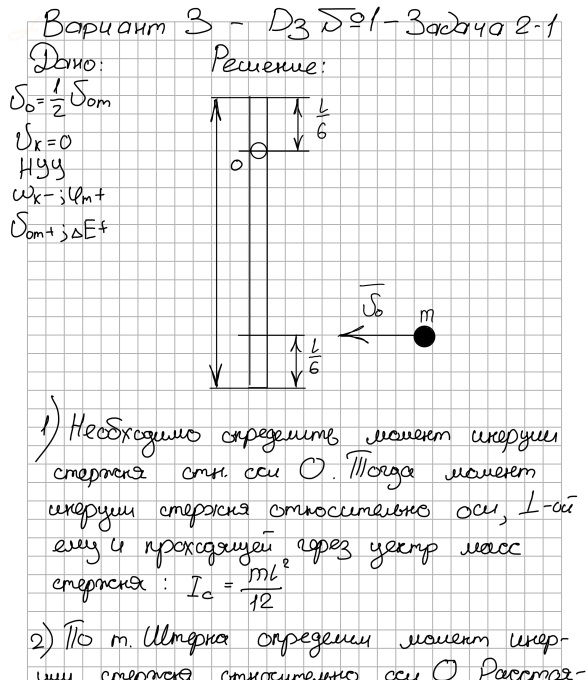 Вариант 3 - DЗ №1 - Задача 2-1
Дано:
Решение:
υ₀ = 1/2 υ₀m
υк = 0
НУУ
ωк - ; φm +
υ₀m + ; ΔE +
L/6
O
υ₀
m
L/6
1) Необходимо определить момент инерции
стержня отн. оси O. Тогда момент
инерции стержня относительно оси, ⊥-ой
ему и проходящей через центр масс
стержня : I_c = mL²/12
2) По т. Штерна определим момент инер-
ции стержня относительно оси O Расстоя-